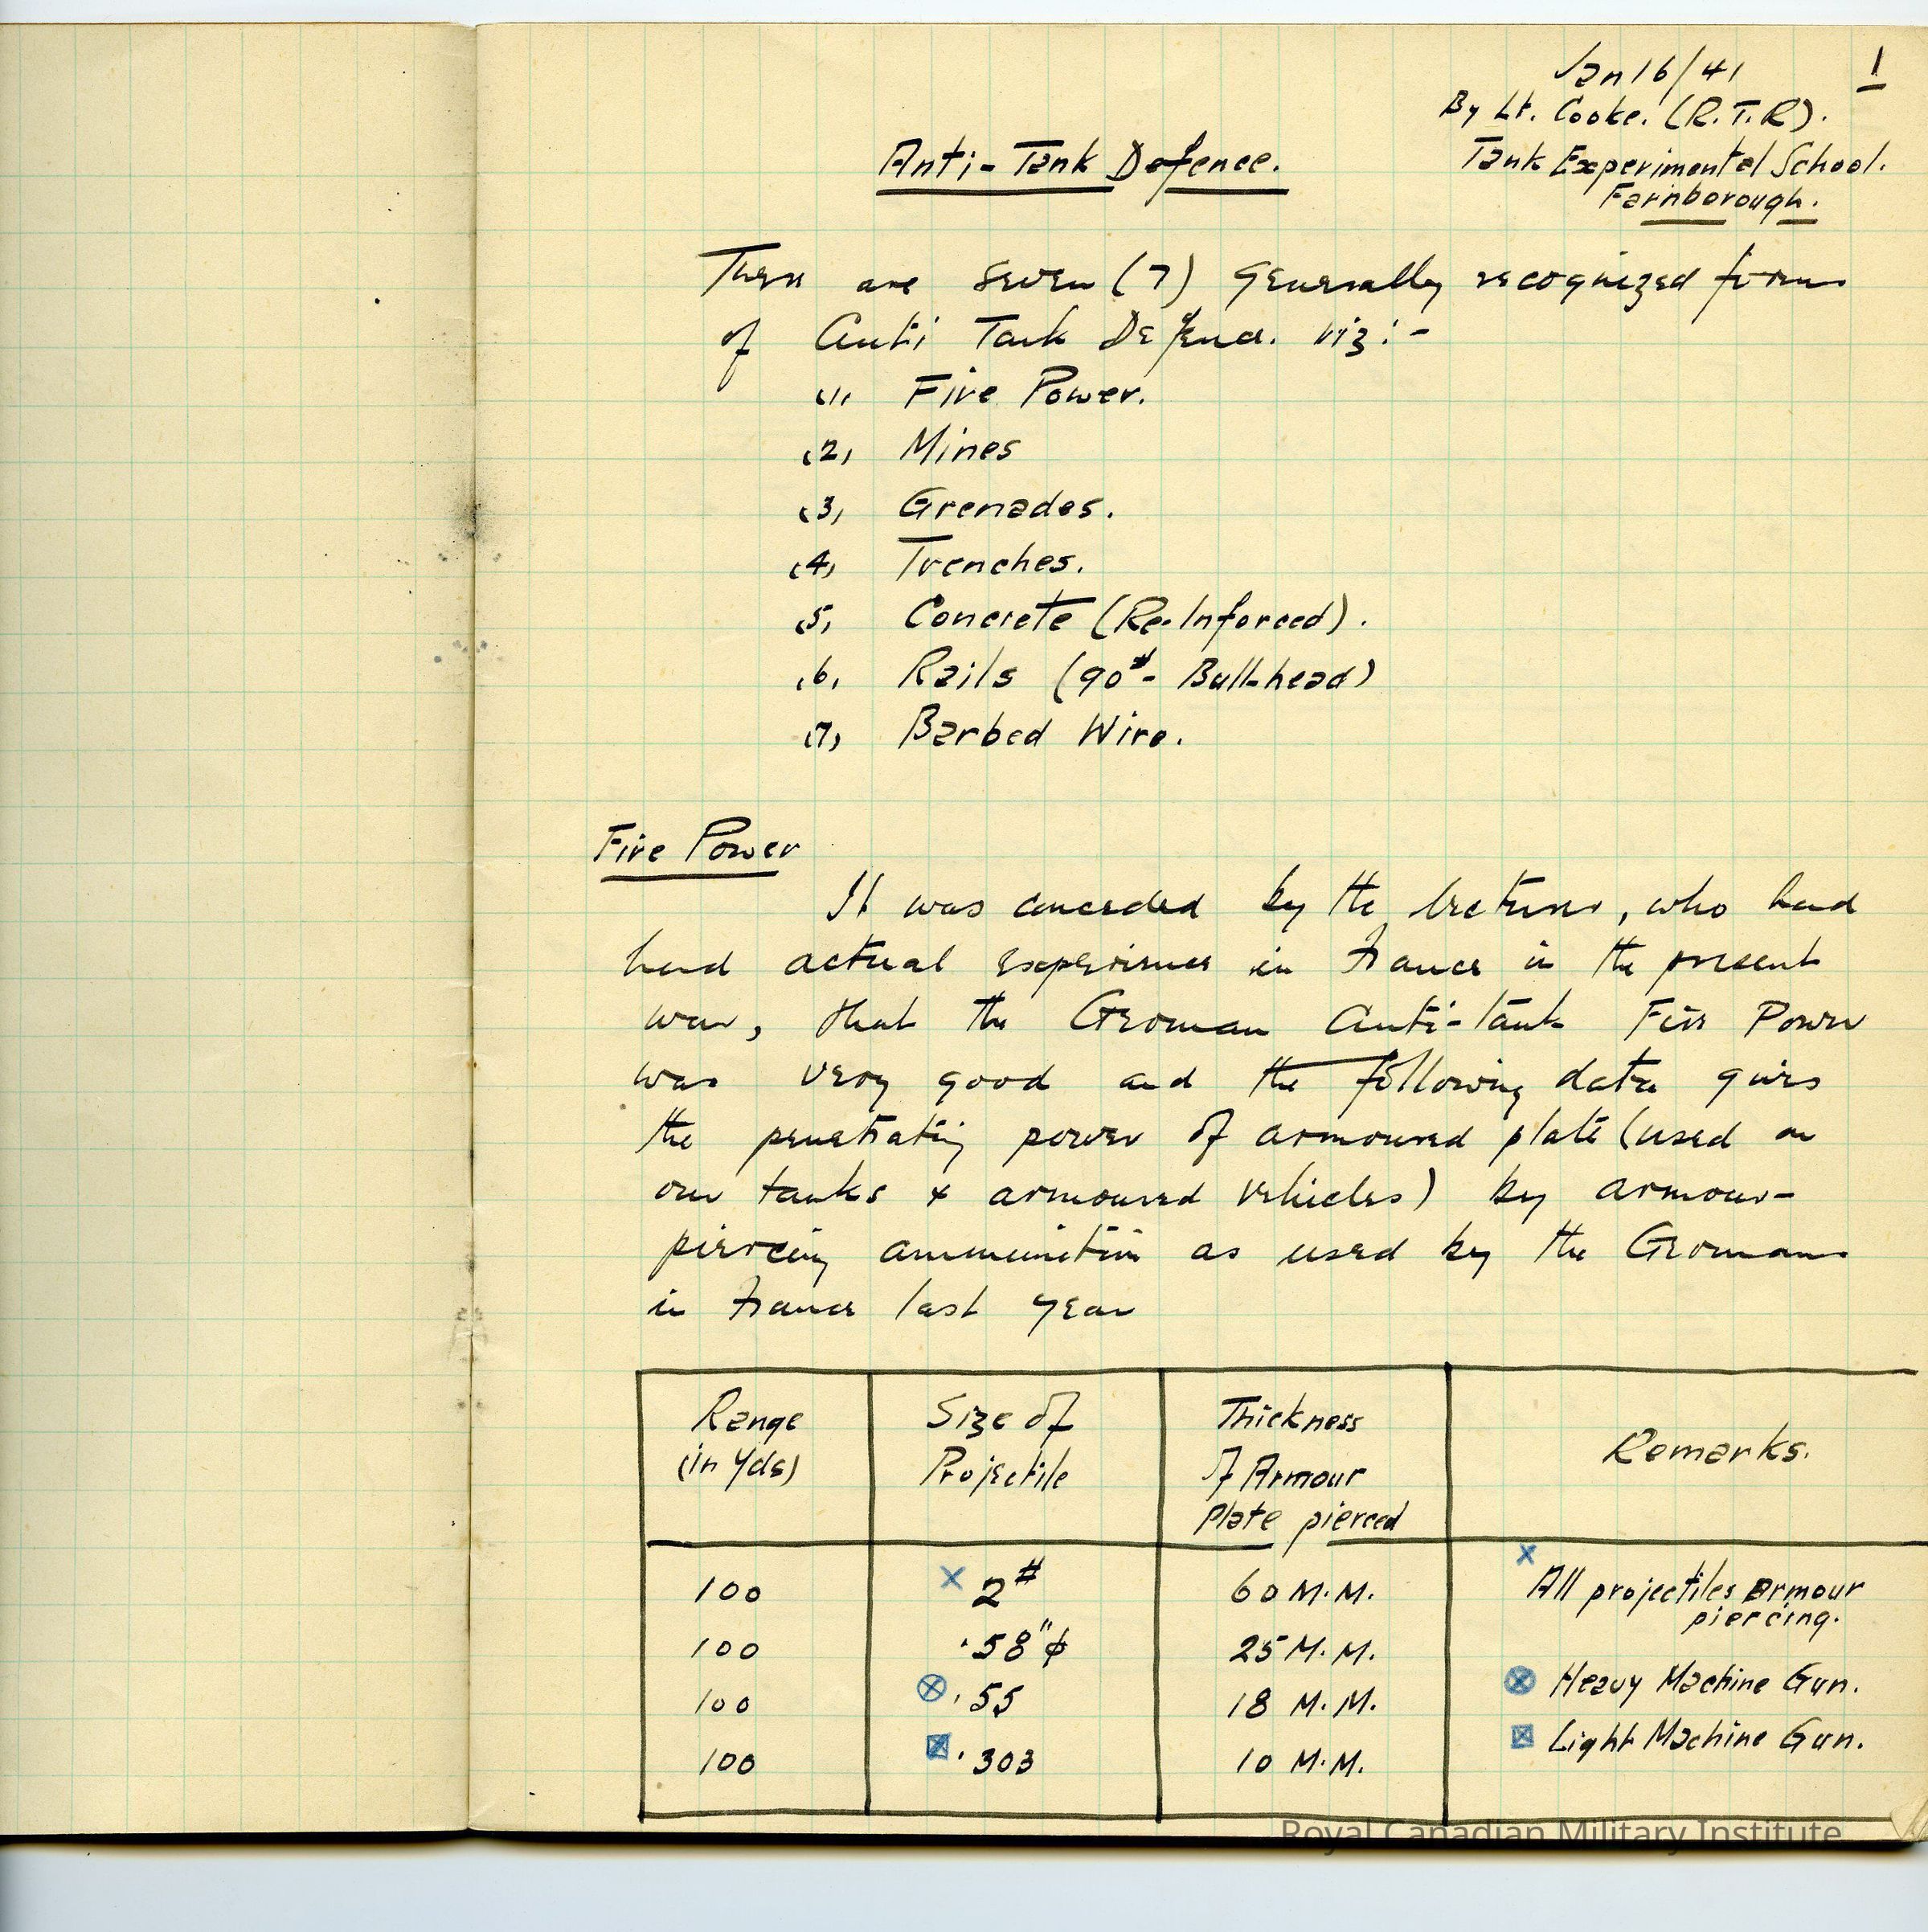 Jan 16/41
1
By Lt. Cooke. (R.T.R).
Anti-Tank Defence.
Tank Experimental School.
Farnborough.
There are seven (7) generally recognized forms
of Anti Tank Defence. viz:-
(1) Fire Power.
(2) Mines
(3) Grenades.
(4) Trenches.
(5) Concrete (Re-Inforced).
(6) Rails (90# - Bull-head)
(7) Barbed Wire.
Fire Power
It was conceded by the lecturer, who had
had actual experience in France in the present
war, that the German Anti-tank Fire Power
was very good and the following data gives
the penetrating power of armoured plate (used on
our tanks & armoured vehicles) by armour-
piercing ammunition as used by the Germans
in France last year
Range (in Yds) Size of Projectile Thickness of Armour Plate pierced Remarks.
100 x 2# 60 M.M. x All projectiles armour piercing.
100 .58"φ 25 M.M.
100 ⊗ .55 18 M.M. ⊗ Heavy Machine Gun.
100 ⊠ .303 10 M.M. ⊠ Light Machine Gun.
Royal Canadian Military Institute